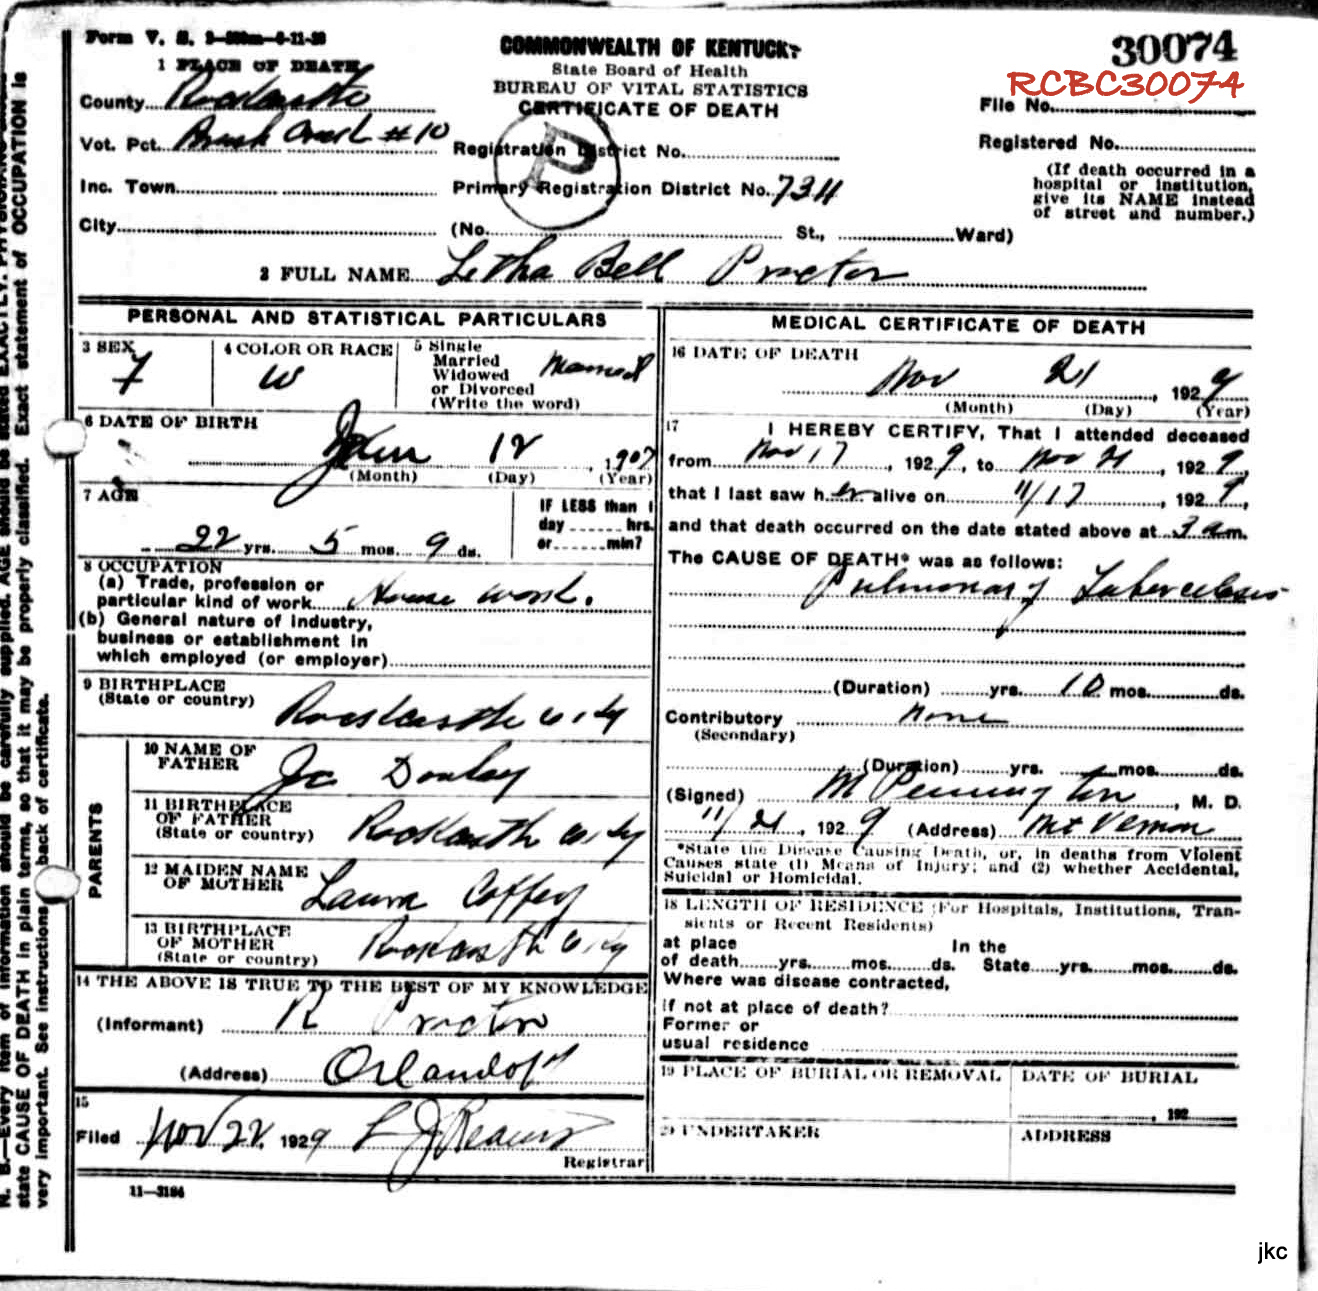 Form V. S. 1-11-28
COMMONWEALTH OF KENTUCKY
State Board of Health
BUREAU OF VITAL STATISTICS
CERTIFICATE OF DEATH
30074
RCBC30074
File No.
Registered No.
(If death occurred in a
hospital or institution,
give its NAME instead
of street and number.)
1 PLACE OF DEATH
County Rockcastle
Vot. Pct. Brush Creek #10
Registration District No.
Inc. Town
Primary Registration District No. 7311
City
(No. St., Ward)
2 FULL NAME Letha Bell Proctor
PERSONAL AND STATISTICAL PARTICULARS
3 SEX
F
4 COLOR OR RACE
W
5 Single
Married
Widowed
or Divorced
(Write the word)
Married
6 DATE OF BIRTH
12, 1907
(Month) (Day) (Year)
7 AGE
22 yrs. 5 mos. 9 ds.
IF LESS than 1
day hrs.
or min?
8 OCCUPATION
(a) Trade, profession or
particular kind of work House work.
(b) General nature of industry,
business or establishment in
which employed (or employer)
9 BIRTHPLACE
(State or country)
Rockcastle Co Ky
PARENTS
10 NAME OF
FATHER
11 BIRTHPLACE
OF FATHER
(State or country)
Rockcastle Co Ky
12 MAIDEN NAME
OF MOTHER
Laura Coffey
13 BIRTHPLACE
OF MOTHER
(State or country)
Rockcastle Co Ky
14 THE ABOVE IS TRUE TO THE BEST OF MY KNOWLEDGE
(Informant) R Proctor
(Address) Orlando Ky
15
Filed Nov 22, 1929
Registrar
11—3184
MEDICAL CERTIFICATE OF DEATH
16 DATE OF DEATH
Nov 21, 1929
(Month) (Day) (Year)
17 I HEREBY CERTIFY, That I attended deceased
from Nov 17, 1929, to Nov 21, 1929,
that I last saw her alive on 11/17, 1929,
and that death occurred on the date stated above at 3 am.
The CAUSE OF DEATH* was as follows:
Pulmonary Tuberculosis
(Duration) yrs. 10 mos. ds.
Contributory None
(Secondary)
(Duration) yrs. mos. ds.
(Signed) M Pennington, M. D.
11/21, 1929 (Address) Mt Vernon
*State the Disease Causing Death, or, in deaths from Violent
Causes state (1) Means of Injury; and (2) whether Accidental,
Suicidal or Homicidal.
18 LENGTH OF RESIDENCE (For Hospitals, Institutions, Tran-
sients or Recent Residents)
at place In the
of death yrs. mos. ds. State yrs. mos. ds.
Where was disease contracted,
if not at place of death?
Former or
usual residence
19 PLACE OF BURIAL OR REMOVAL
DATE OF BURIAL
, 192
20 UNDERTAKER
ADDRESS
N. B.—Every item of information should be carefully supplied. AGE should be stated EXACTLY. PHYSICIANS
state CAUSE OF DEATH in plain terms, so that it may be properly classified. Exact statement of OCCUPATION is
very important. See instructions back of certificate.
jkc